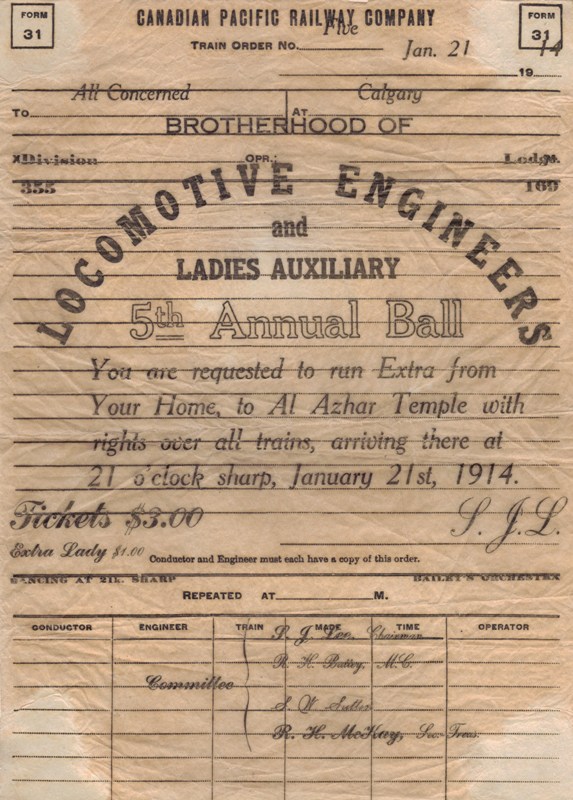 FORM 31
CANADIAN PACIFIC RAILWAY COMPANY
FORM 31
TRAIN ORDER NO. Five
Jan. 21
19 14
To All Concerned At Calgary
BROTHERHOOD OF
Division OPR.; Lodge
355 169
LOCOMOTIVE ENGINEERS
and
LADIES AUXILIARY
5th Annual Ball
You are requested to run Extra from
Your Home, to Al Azhar Temple with
rights over all trains, arriving there at
21 o'clock sharp, January 21st, 1914.
Tickets $3.00 S. J. L.
Extra Lady $1.00
Conductor and Engineer must each have a copy of this order.
DANCING AT 21K. SHARP BAILEY'S ORCHESTRA
REPEATED AT M.
CONDUCTOR ENGINEER TRAIN MADE TIME OPERATOR
S. J. Lee, Chairman
R. H. M.C.
Committee
S. W.
R. H. McKay, Sec-Treas.